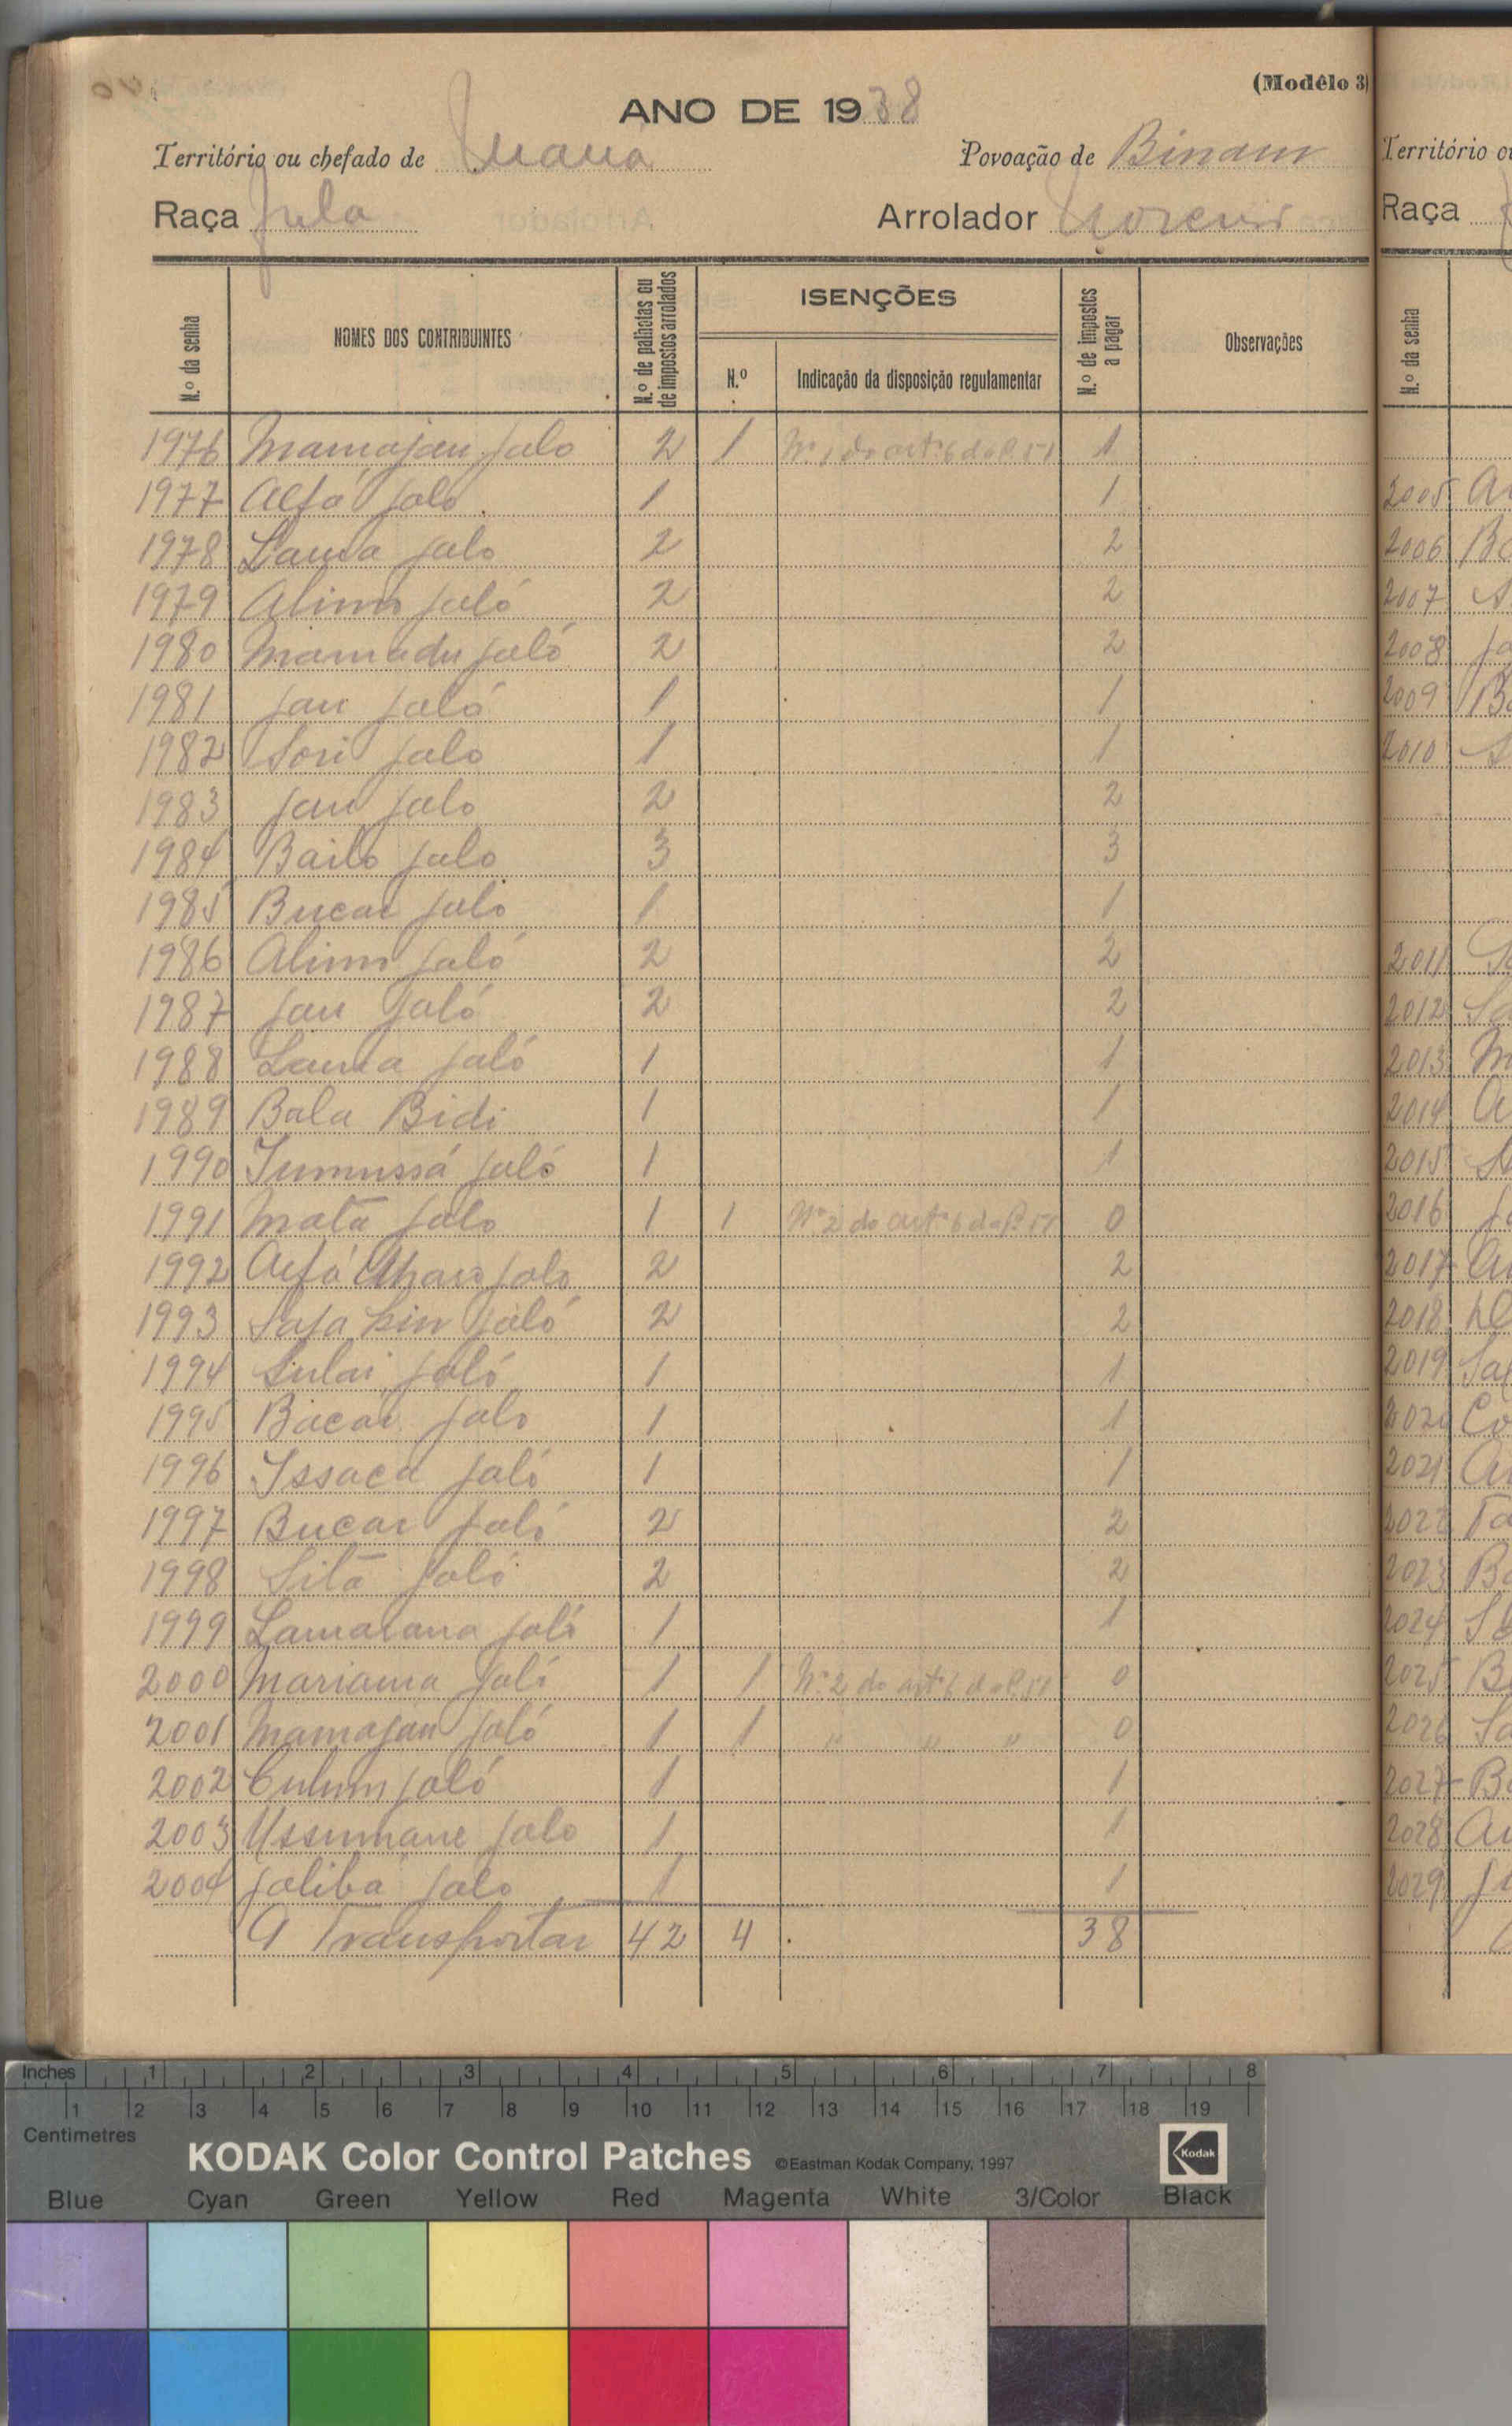 (Modêlo 3)
ANO DE 1938
Território ou chefado de
Povoação de Binam
Raça Fula
Arrolador
N.º da senha
NOMES DOS CONTRIBUINTES
N.º de palhotas ou de impostos arrolados
ISENÇÕES
N.º
Indicação da disposição regulamentar
N.º de impostos a pagar
Observações
1976 Mamajan Jalo 2 1 Nº 1 do artº 6 do P. 51 1
1977 Alfá Jaló 1 1
1978 Jalo 2 2
1979 Alimo Jaló 2 2
1980 Mamadu Jaló 2 2
1981 Jau Jaló 1 1
1982 Sori Jalo 1 1
1983 Jau Jalo 2 2
1984 Bailo Jalo 3 3
1985 Bucar Jalo 1 1
1986 Alimo Jaló 2 2
1987 Jau Jaló 2 2
1988 Jaló 1 1
1989 Bala Bidi 1 1
1990 Jaló 1 1
1991 Mata Jalo 1 1 Nº 2 do artº 6 do P. 51 0
1992 Jalo 2 2
1993 Jaló 2 2
1994 Sulai Jaló 1 1
1995 Bacar Jalo 1 1
1996 Issaca Jaló 1 1
1997 Bucar Jaló 2 2
1998 Jaló 2 2
1999 Lamarana Jaló 1 1
2000 Mariama Jaló 1 1 Nº 2 do artº 6 do P. 51 0
2001 Mamajan Jaló 1 1 " " " 0
2002 Jaló 1 1
2003 Ussumane Jalo 1 1
2004 Jaliba Jalo 1 1
A Transportar 42 4 38
Território ou
Raça
N.º da senha
2005
2006
2007
2008
2009
2010
2011
2012
2013
2014
2015
2016
2017
2018
2019
2020
2021
2022
2023
2024
2025
2026
2027
2028
2029
Inches 1 2 3 4 5 6 7 8
1 2 3 4 5 6 7 8 9 10 11 12 13 14 15 16 17 18 19
Centimetres
KODAK Color Control Patches ©Eastman Kodak Company, 1997 Kodak
Blue Cyan Green Yellow Red Magenta White 3/Color Black